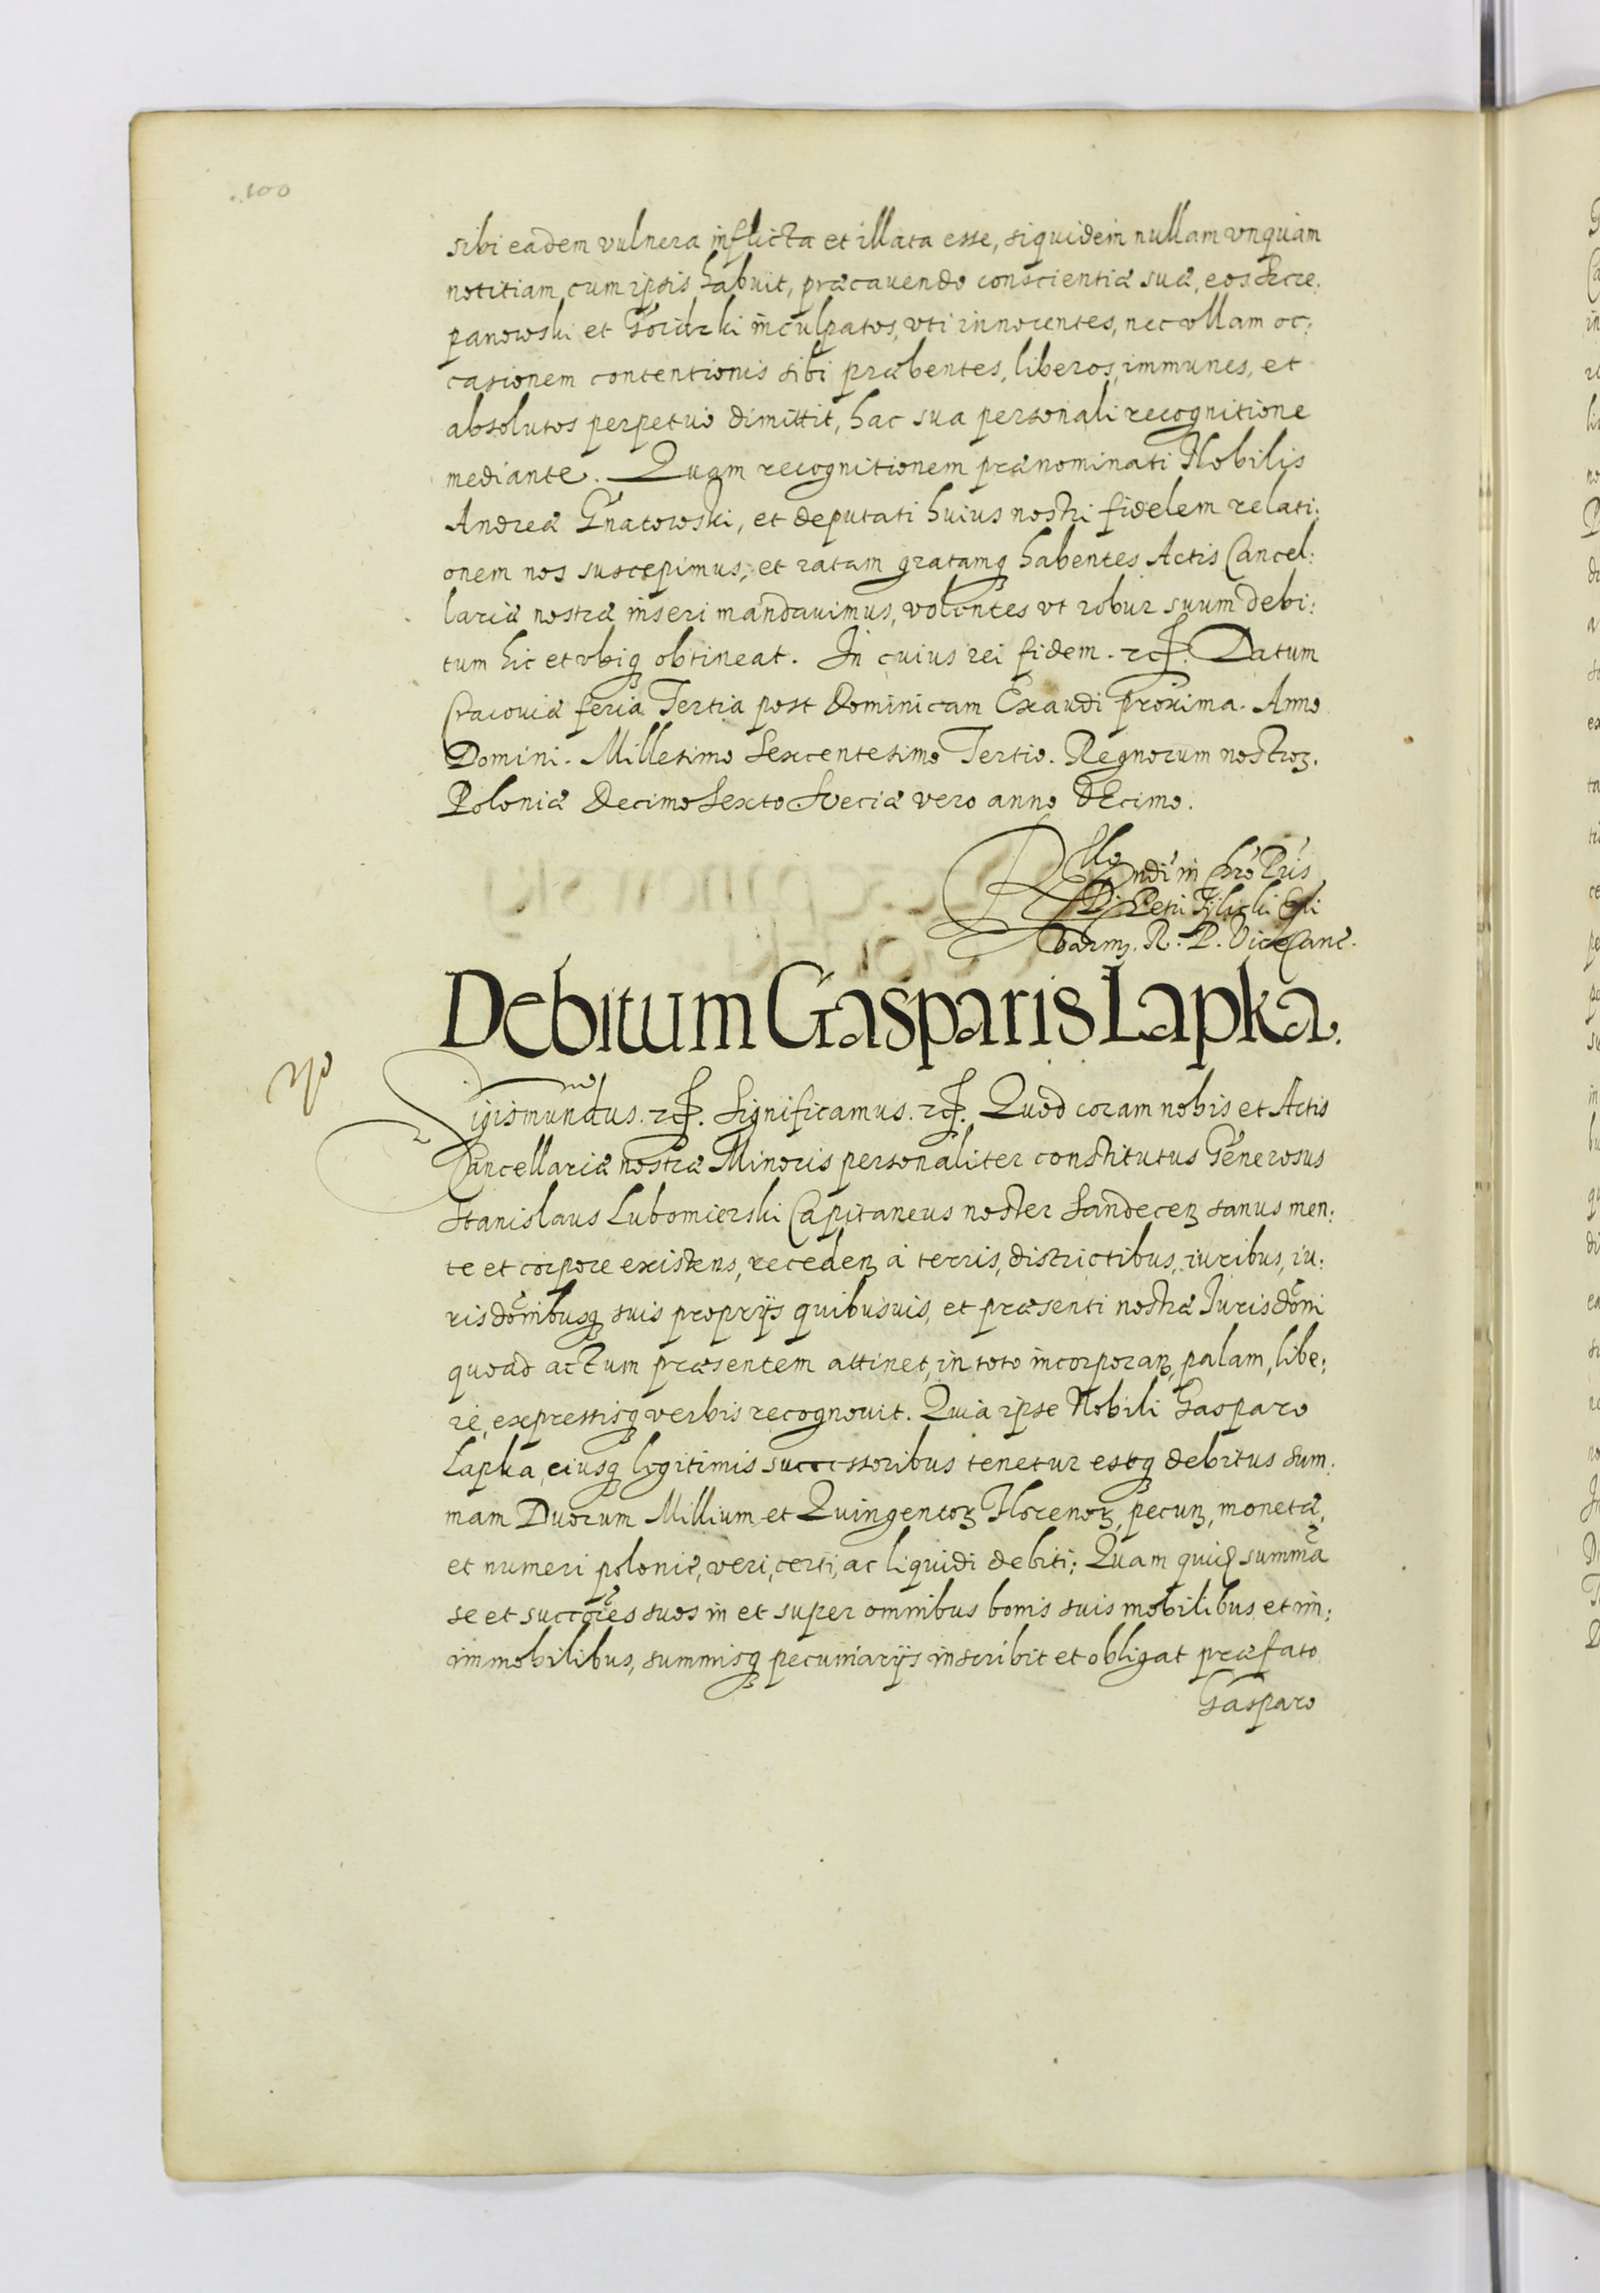 100
sibi eadem vulnera inflicta et illata esse, siquidem nullam vnquam
notitiam cum ipsis habuit, præcauendo conscientiæ suæ, eos Szcze:
panowski et inculpatos, vti innocentes, nec vllam oc:
casionem contentionis sibi præbentes, liberos, immunes, et
absolutos perpetuo dimittit, hac sua personali recognitione
mediante. Quam recognitionem prænominati Nobilis
Andreæ Gnatowski, et deputati huius nostri fidelem relati:
onem nos suscepimus, et ratam gratamq habentes Actis Cancel:
lariæ nostræ inseri mandauimus, volentes vt robur suum debi:
tum hic et vbiq obtineat. In cuius rei fidem. etc. Datum
Cracouiæ feria Tertia post Dominicam Exaudi proxima. Anno
Domini. Millesimo Sexcentesimo Tertio. Regnorum nostroꝝ.
Poloniæ Decimo Sexto Sueciæ vero anno dEcimo.
Rllo ndi in Chro Pris
D: Petri Tÿlicki Epi
Varm. R. P. ViceCanc.
Debitum Gasparis Lapka.
Sigismundus. etc. Significamus. etc. Quod coram nobis et Actis
Cancellariæ nostræ Minoris personaliter constitutus Generosus
Stanislaus Lubomierski Capitaneus noster Sandeceꝫ sanus men:
te et corpore existens, recedenꝫ à terris, districtibus, iuribus, iu:
risdõnibusq suis proprÿs quibusuis, et præsenti nostræ Jurisdõni
quoad actum præsentem attinet, in toto incorporanꝫ, palam, libe:
rè, expressisq verbis recognouit. Quia ipse Nobili Gasparo
Lapka, eiusq legitimis successoribus tenetur estq debitus sum:
mam Duorum Millium et Quingentoꝝ Florenoꝝ, pecunꝫ, monetæ,
et numeri polonic, veri, certi, ac liquidi debiti; Quam quid summã
se et succores suos in et super omnibus bonis suis mobilibus et im:
immobilibus, summisq pecuniarÿs inscribit et obligat præfato
Gasparo